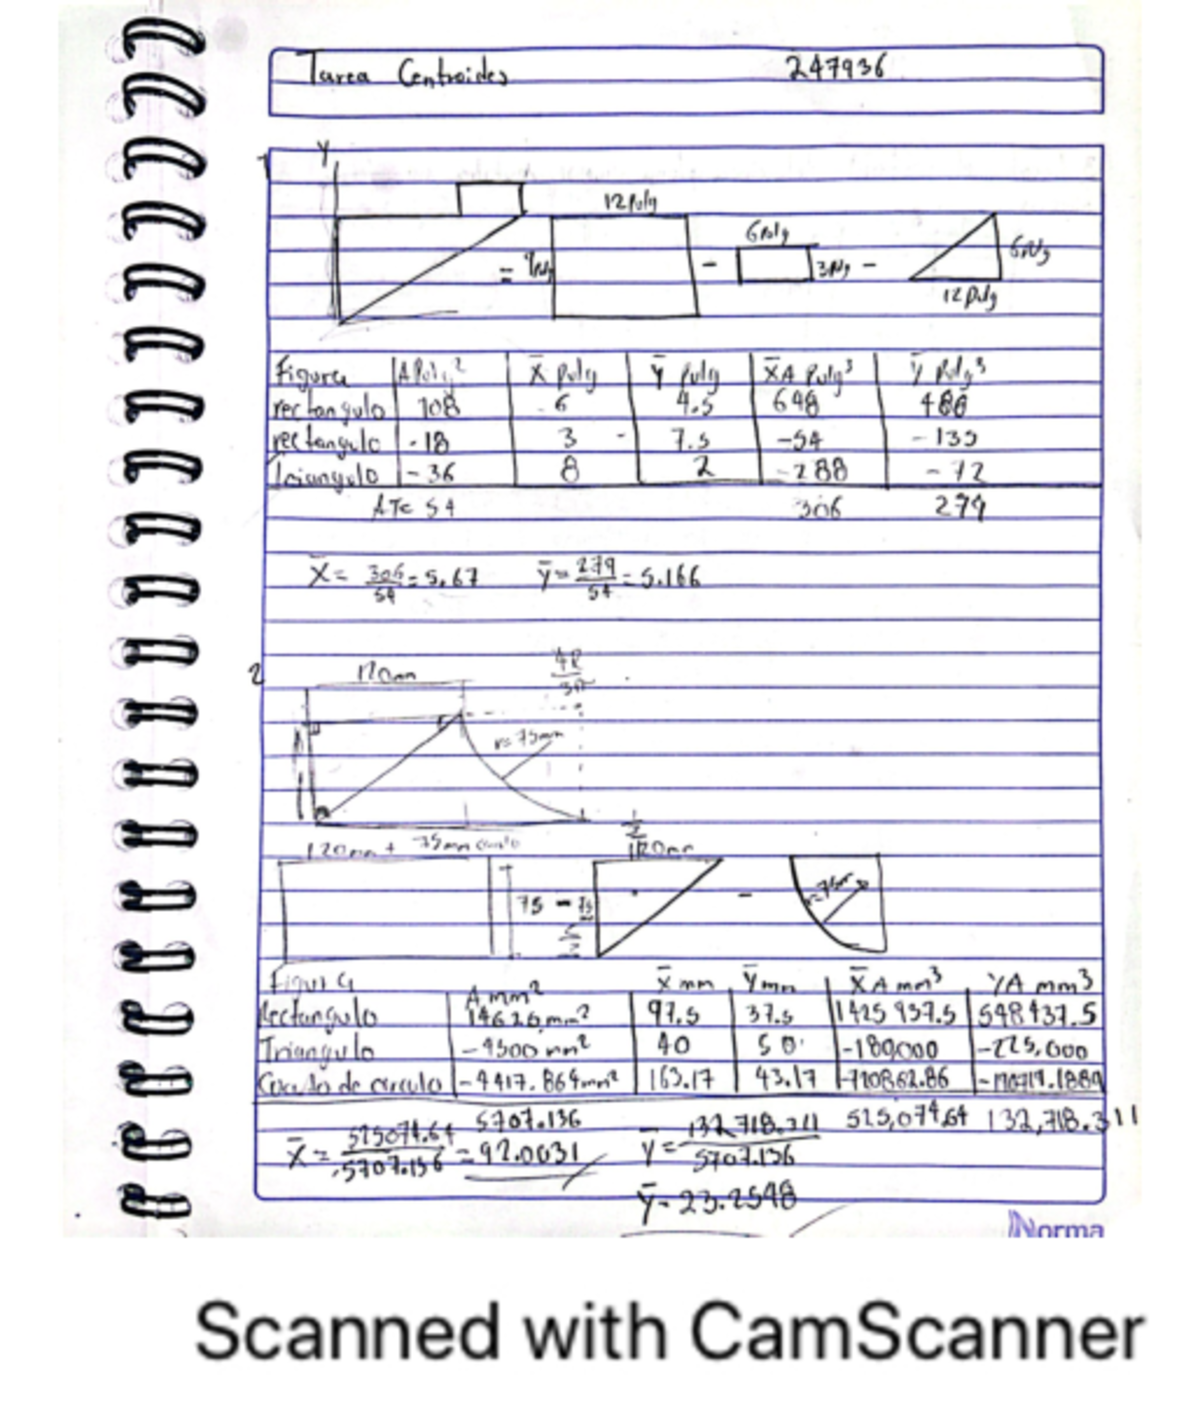 Tarea Centroides 247936
1 Y
12 Pulg
6 Pulg
= 9 Pulg - 3 Pulg - 6 Pulg
12 Pulg
Figura A Pulg² X̄ Pulg Ȳ Pulg X̄A Pulg³ Ȳ Pulg³
rectangulo 108 6 4.5 648 486
rectangulo -18 3 7.5 -54 -135
Triangulo -36 8 2 -288 -72
AT= 54 306 279
X̄ = 306/54 = 5.67 Ȳ = 279/54 = 5.166
2 120mm 4R/3π
r=75mm
120mm + 75mm
120mm
75 - 75 - r=75mm
Figura A mm² X̄ mm Ȳ mm X̄A mm³ YA mm³
Rectangulo 14625 mm² 97.5 37.5 1425937.5 548437.5
Triangulo -4500 mm² 40 50 -180000 -225,000
Cuarto de circulo -4417.864mm² 163.17 43.17 -720862.86 -190719.1889
5707.136 525,074.64 132,718.311
X̄ = 525074.64/5707.136 = 92.0031 Ȳ = 132,718.311/5707.136
Ȳ = 23.2548
Norma
Scanned with CamScanner